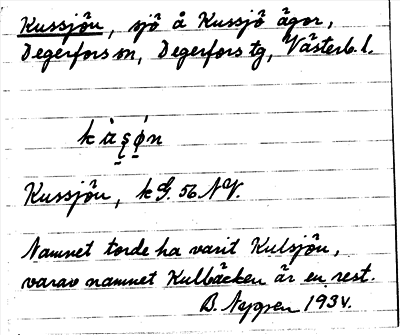 Kussjön, sjö å Kussjö ägor,
Degerfors sn, Degerfors tg, Västerb. l.
Kussjön, kG. 56 NV.
Namnet torde ha varit Kulsjön,
varav namnet Kulbäcken är en rest.
B. Nygren 1934.